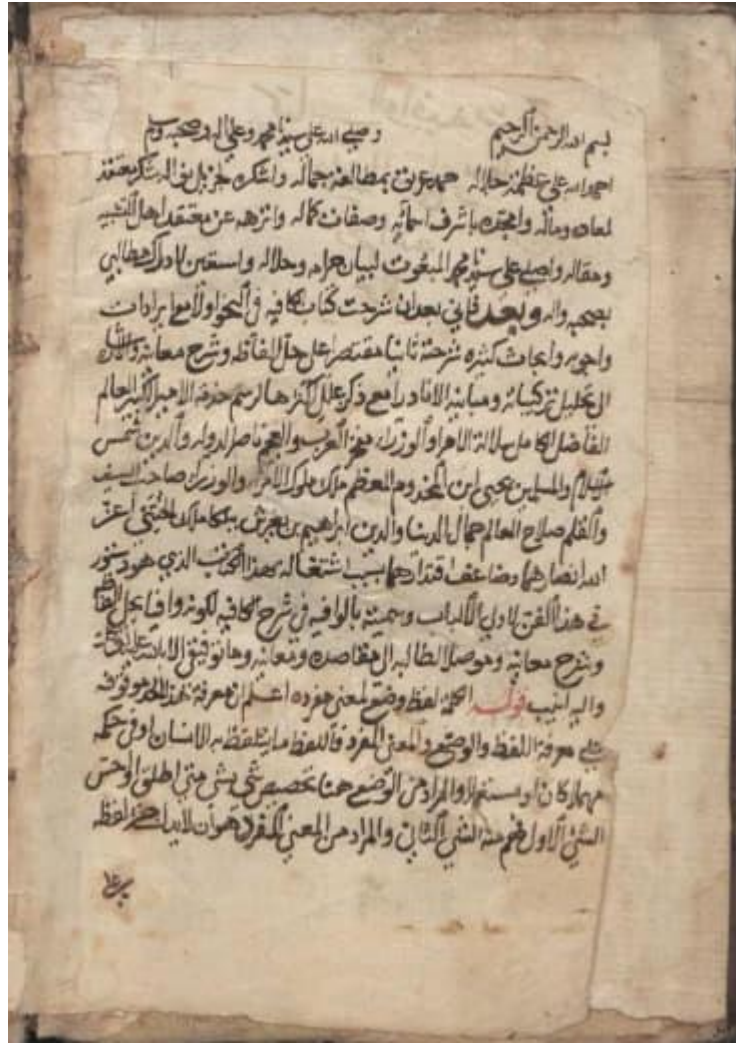 بسم الله الرحمن الرحيم وصلى الله على سيدنا محمد وعلى اله وصحبه وسلم
احمد الله على عظمة جلاله حمد غريق بمطالعة جماله واشكره جزيل نواله شكر معتقد
لمعاده وماله وامجده باشرف اسمائه وصفات كماله وانزهه عن معتقد اهل التشبيه
ومقاله واصلي على سيدنا محمد المبعوث لبيان حرامه وحلاله واستعين لادراك مطالبي
بصحبه واله وبعد فاني بعد ان شرحت كتاب الكافيه في النحو اولا مع ايرادات
واجوبه وابحاث كثيره شرحته ثانيا مقتصرا على حل الفاظه وشرح معانيه والاشارة
الى تحليل تركيباته ومبانيه الا نادرا مع ذكر علل اكثرها لرسم خدمة الامير الكبير العالم
الفاضل الكامل سلالة الامراء والوزراء مفخر العرب والعجم ناصر الدوله والدين شمس
الاسلام والمسلمين يحيى ابن المخدوم المعظم ملك ملوك الامراء والوزراء صاحب السيف
والقلم صلاح العالم جمال الدنيا والدين ابراهيم بن ملك اعز
الله انصارهما وضاعف اقتدارهما بسبب اشتغاله بهذا الكتاب الذي هو دستور
في هذا الفن لاولي الالباب وسميته بالوافيه في شرح الكافيه لكونه وافيا بحل الفاظه
وشرح معانيه وموصلا لطالبه الى مقاصده ومعانيه وما توفيقي الا بالله عليه توكلت
واليه انيب قوله الكلمة لفظ وضع لمعنى مفرد اعلم ان معرفة هذا الحد موقوفه
على معرفة اللفظ والوضع والمعنى المفرد فاللفظ ما يتلفظ به الانسان او في حكمه
مهملا كان او مستعملا والمراد من الوضع هنا تخصيص شي بشي متى اطلق او احس
الشي الاول فهم منه الشي الثاني والمراد من المعنى المفرد هو ان لا يدل جزء لفظه